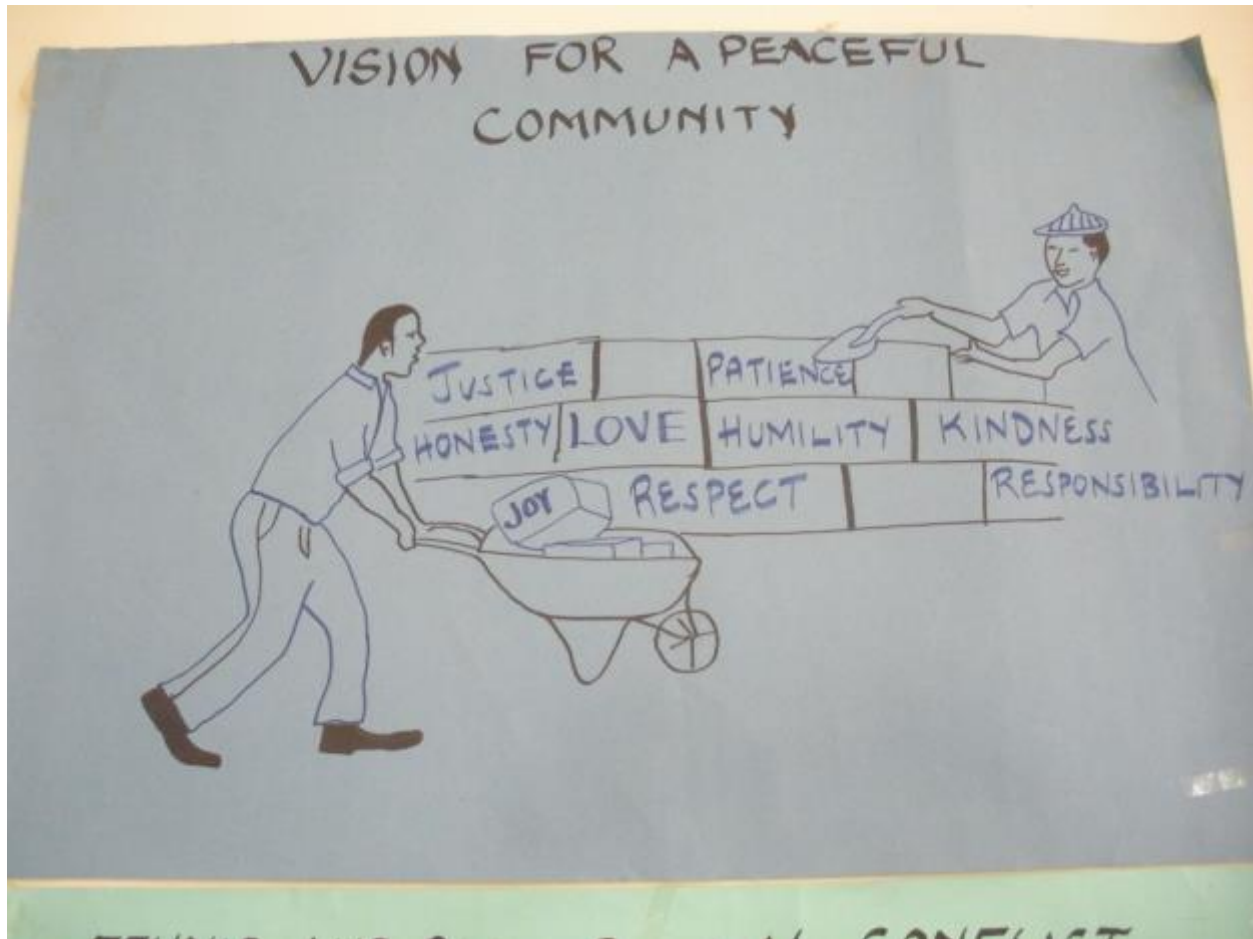 VISION FOR A PEACEFUL
COMMUNITY
JUSTICE PATIENCE
HONESTY LOVE HUMILITY KINDNESS
JOY RESPECT RESPONSIBILITY
CONFLICT